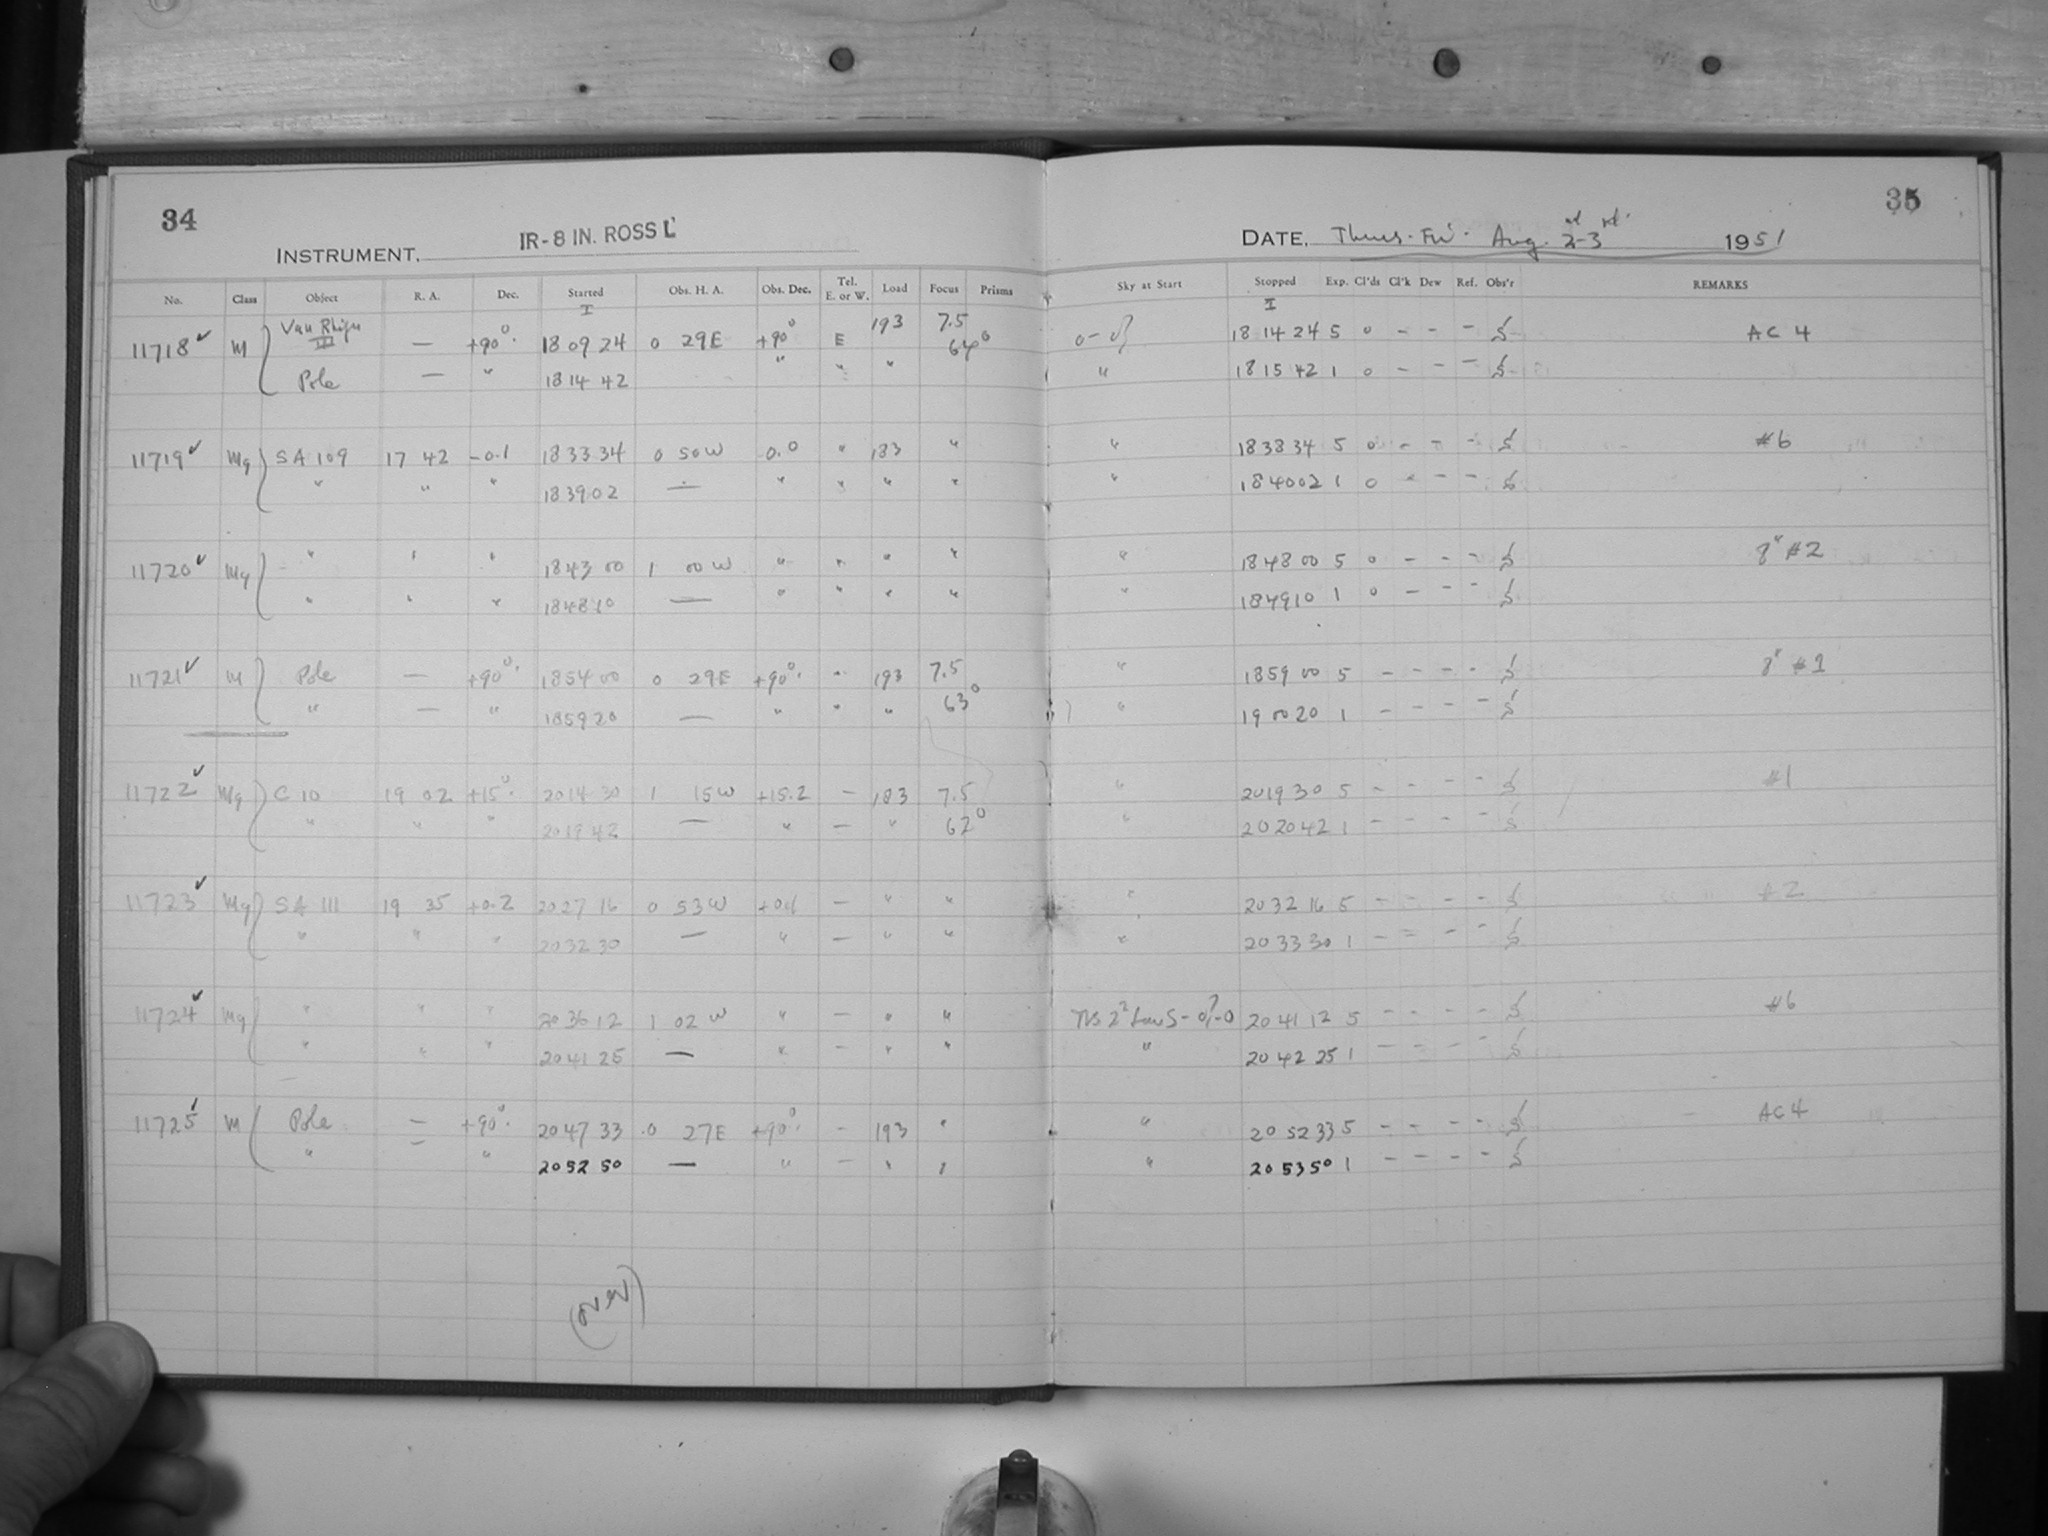 34
INSTRUMENT. IR-8 IN. ROSS L'
No. Class Object R. A. Dec. Started Obs. H. A. Obs. Dec. Tel. E. or W. Load Focus Prisms
I
11718✓ M Van Rhijn III — +90° 18 09 24 0 29E +90° E 193 7.5 64°
Pole — " 18 14 42 " " "
11719✓ Mg SA 109 17 42 -0.1 18 33 34 0 50W 0.0 " 183 "
" " " 18 39 02 — " " " "
11720✓ Mg " " " 18 43 00 1 00W " " " "
" " " 18 48 10 — " " " "
11721✓ M Pole — +90° 18 54 00 0 29E +90° " 193 7.5
" — " 18 59 20 — " " " 63°
11722✓ Mg C 10 19 02 +15° 20 14 30 1 15W +15.2 — 183 7.5
" " " 20 19 42 — " — " 62°
11723✓ Mg SA 111 19 35 +0.2 20 27 16 0 53W — " "
" " " 20 32 30 — " — " "
11724✓ Mg " " " 20 36 12 1 02W " — " "
" " " 20 41 25 — " — " "
11725✓ M Pole — +90° 20 47 33 0 27E +90° — 193 "
" — " 20 52 50 — " — " "
(over)
35
DATE, Thurs-Fri. Aug. 2nd-3rd 1951
Sky at Start Stopped Exp. Cl'ds Cl'k Dew Ref. Obs'r REMARKS
I
0-0? 18 14 24 5 0 - - - AC 4
" 18 15 42 1 0 - - -
" 18 38 34 5 0 - - - #6
" 18 40 02 1 0 - - -
" 18 48 00 5 0 - - - 8" #2
" 18 49 10 1 0 - - -
" 18 59 00 5 - - - - 8" #1
" 19 00 20 1 - - - -
" 20 19 30 5 - - - - #1
" 20 20 42 1 - - - -
" 20 32 16 5 - - - - #2
" 20 33 30 1 - - - -
20 41 12 5 - - - - #6
" 20 42 25 1 - - - -
" 20 52 33 5 - - - - AC 4
" 20 53 50 1 - - - -